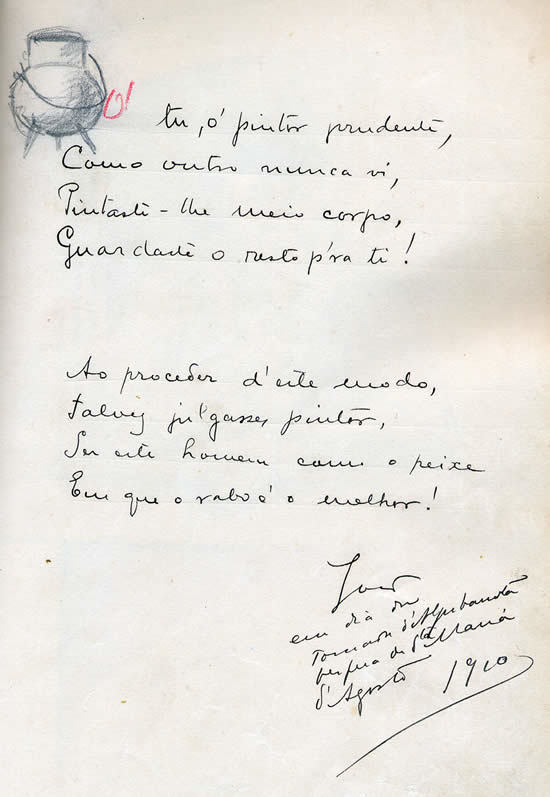 Ó!
tu, ó pintor prudente,
Como outro nunca vi,
Pintaste-lhe meio corpo,
Guardaste o resto p'ra ti!
Ao proceder d'este modo,
Talvez julgasses pintor,
Ser este homem como o peixe
Em que o rabo é o melhor!
em dia de
d'Aljubarrota
vespera de Sta Maria
d'Agosto 1910